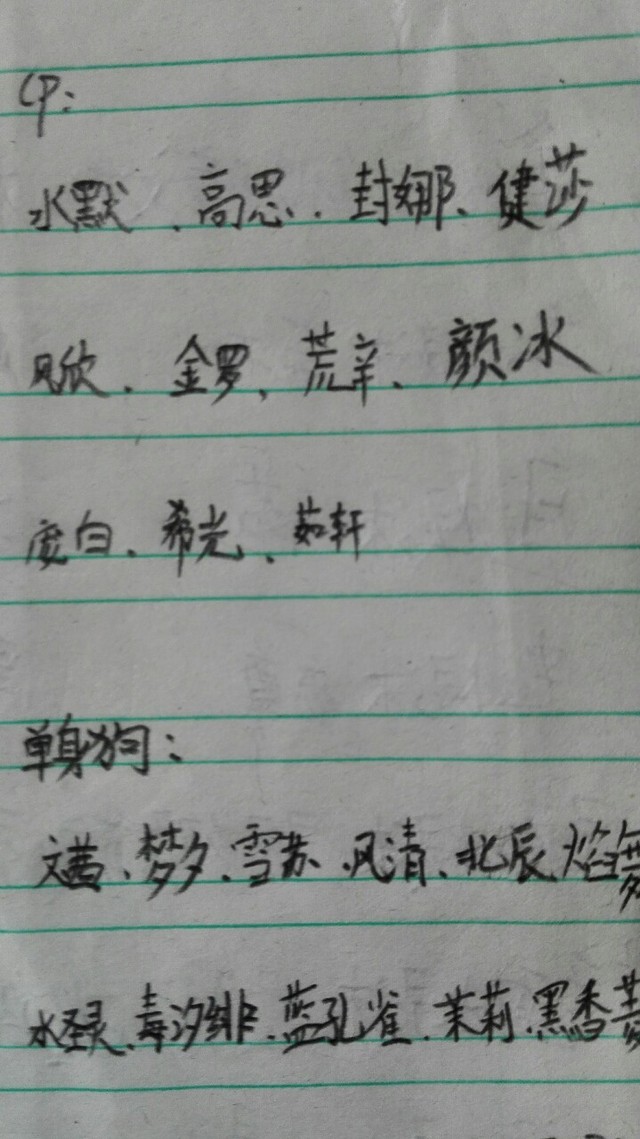 CP:
水默、高思、封娜、健莎
风欣、金罗、荒辛、颜冰
庞白、希光、茹轩
单身狗:
文茜、梦夕、雪苏、风清、北辰
水圣灵、毒汐绯、蓝孔雀、茉莉、黑香菱